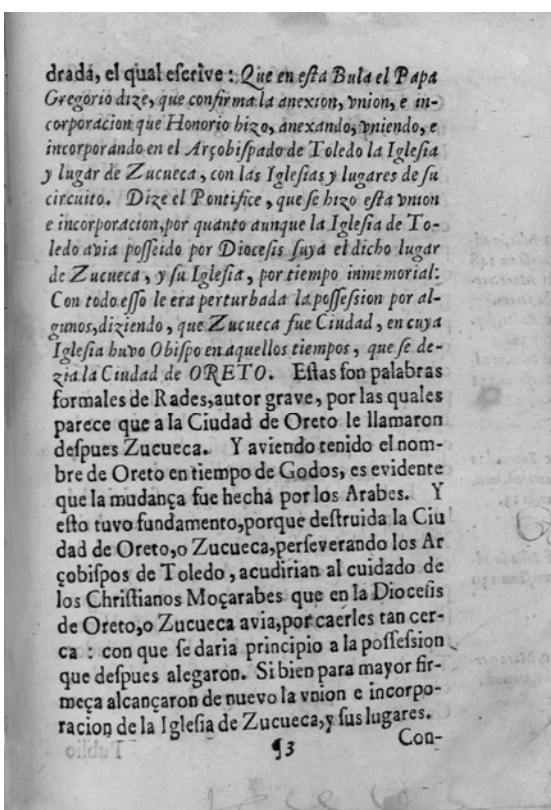 drada, el qual eſcrive: Que en eſta Bula el Papa
Gregorio dize, que confirma la anexion, vnion, e in-
corporacion que Honorio hizo, anexando, vniendo, e
incorporando en el Arçobiſpado de Toledo la Igleſia
y lugar de Zucueca, con las Igleſias y lugares de ſu
circuito. Dize el Pontifice, que ſe hizo eſta vnion
e incorporacion, por quanto aunque la Igleſia de To-
ledo avia poſſeido por Dioceſis ſuya el dicho lugar
de Zucueca, y ſu Igleſia, por tiempo inmemorial:
Con todo eſſo le era perturbada la poſſeſsion por al-
gunos, diziendo, que Zucueca fue Ciudad, en cuya
Igleſia huvo Obiſpo en aquellos tiempos, que ſe de-
zia la Ciudad de ORETO. Eſtas ſon palabras
formales de Rades, autor grave, por las quales
parece que a la Ciudad de Oreto le llamaron
deſpues Zucueca. Y aviendo tenido el nom-
bre de Oreto en tiempo de Godos, es evidente
que la mudança fue hecha por los Arabes. Y
eſto tuvo fundamento, porque deſtruida la Ciu
dad de Oreto, o Zucueca, perſeverando los Ar
çobiſpos de Toledo, acudirian al cuidado de
los Chriſtianos Moçarabes que en la Dioceſis
de Oreto, o Zucueca avia, por caerles tan cer-
ca: con que ſe daria principio a la poſſeſsion
que deſpues alegaron. Si bien para mayor fir-
meça alcançaron de nuevo la vnion e incorpo-
racion de la Igleſia de Zucueca, y ſus lugares.
¶3 Con-